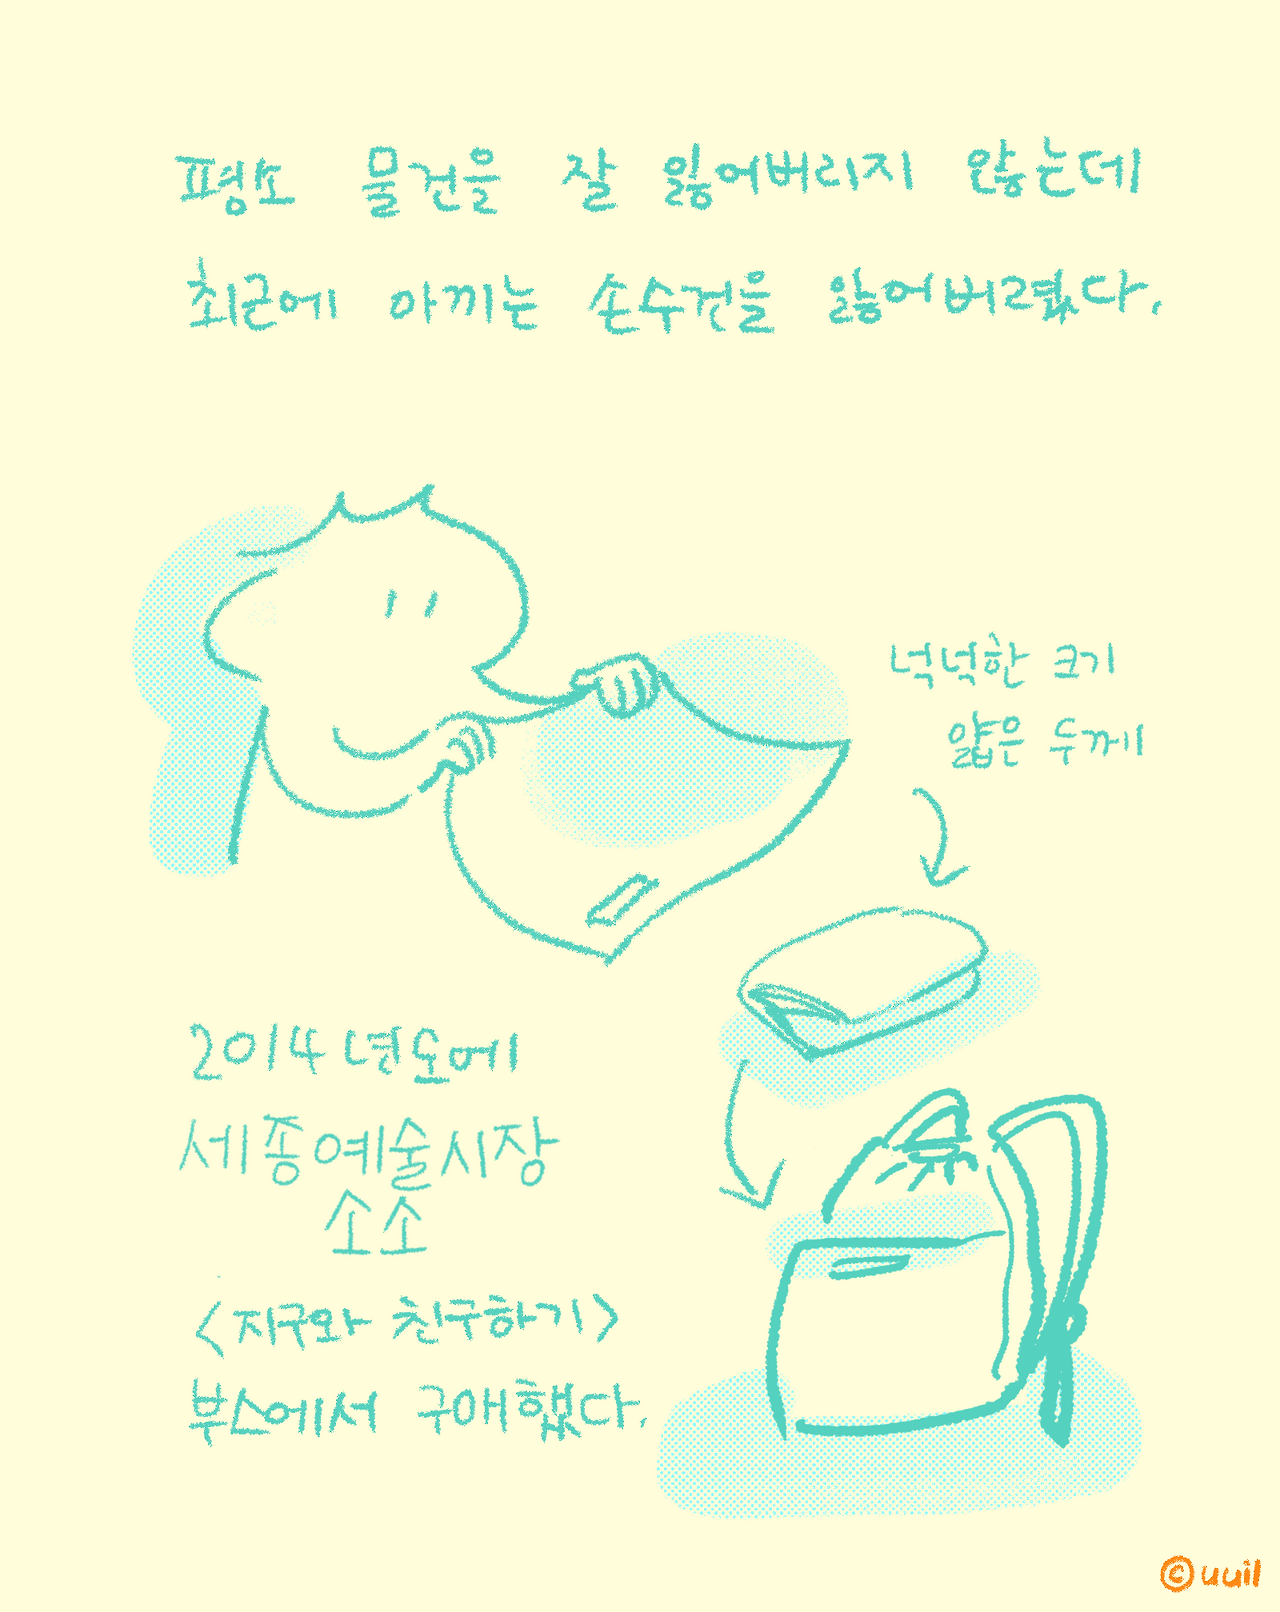 평소 물건을 잘 잃어버리지 않는데
최근에 아끼는 손수건을 잃어버렸다.
넉넉한 크기
얇은 두께
2014년도에
세종예술시장
소소
<지구와 친구하기>
부스에서 구매했다.
©uuil